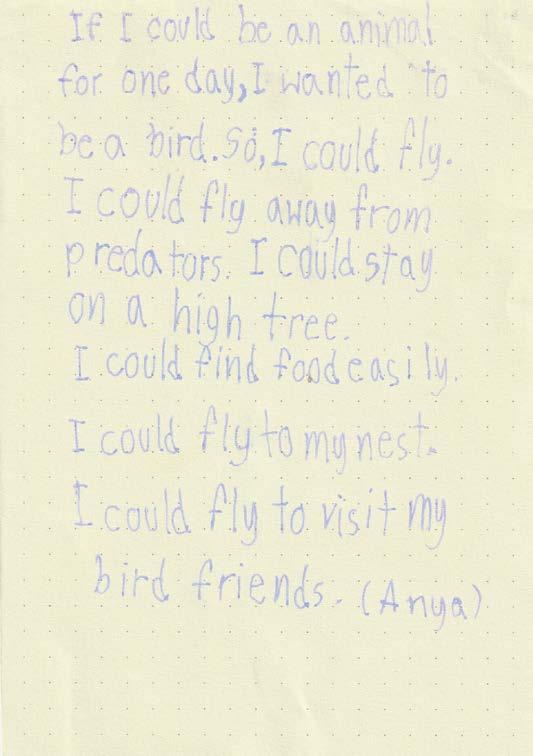 If I could be an animal
for one day, I wanted to
be a bird. So, I could fly.
I could fly away from
predators. I could stay
on a high tree.
I could find food easily.
I could fly to my nest.
I could fly to visit my
bird friends. (Anya)